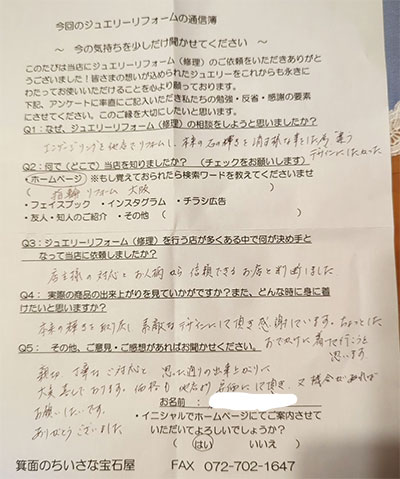 今回のジュエリーリフォームの通信簿
～ 今の気持ちを少しだけ聞かせてください ～
このたびは当店にジュエリーリフォーム（修理）のご依頼をいただきありが
とうございました！皆さまの想いが込められたジュエリーをこれからも永きに
わたってお使いいただけることを心より願っております。
下記、アンケートに率直にご記入いただき私たちの勉強・反省・感謝の要素
にさせてください。このご縁を大切にしたいと思います。
Q1：なぜ、ジュエリーリフォーム（修理）の相談をしようと思いましたか？
エンゲージリングを他店でリフォームし、本来の石の輝きを消す様な事をした為 違う
デザインにしたかった
Q2：何で（どこで）当店を知りましたか？ （チェックをお願いします）
・ホームページ ※もし覚えておられたら検索ワードを教えてくださいませ
（ 指輪 リフォーム 大阪 ）
・フェイスブック ・インスタグラム ・チラシ広告
・友人・知人のご紹介 ・その他（ ）
Q3：ジュエリーリフォーム（修理）を行う店が多くある中で何が決め手と
なって当店に依頼しましたか？
店主様の対応とお人柄から信頼できるお店と判断しました。
Q4： 実際の商品の出来上がりを見ていかがですか？また、どんな時に身に着
けたいと思いますか？
本来の輝きを取り戻し素敵なデザインにして頂き感謝しています。ちょっとした
おでかけに着けて行こうと
思います
Q5： その他、ご意見・ご感想があればお聞かせください。
親切 丁寧なご対応と 思った通りの出来上がりに
大変喜んでおります。価格も他店より安価にして頂き、又機会があれば
お願いしたいです。
ありがとうございました
お名前：
・イニシャルでホームページにてご案内させて
いただいてよろしいでしょうか？
（ はい いいえ ）
箕面のちいさな宝石屋 FAX 072-702-1647